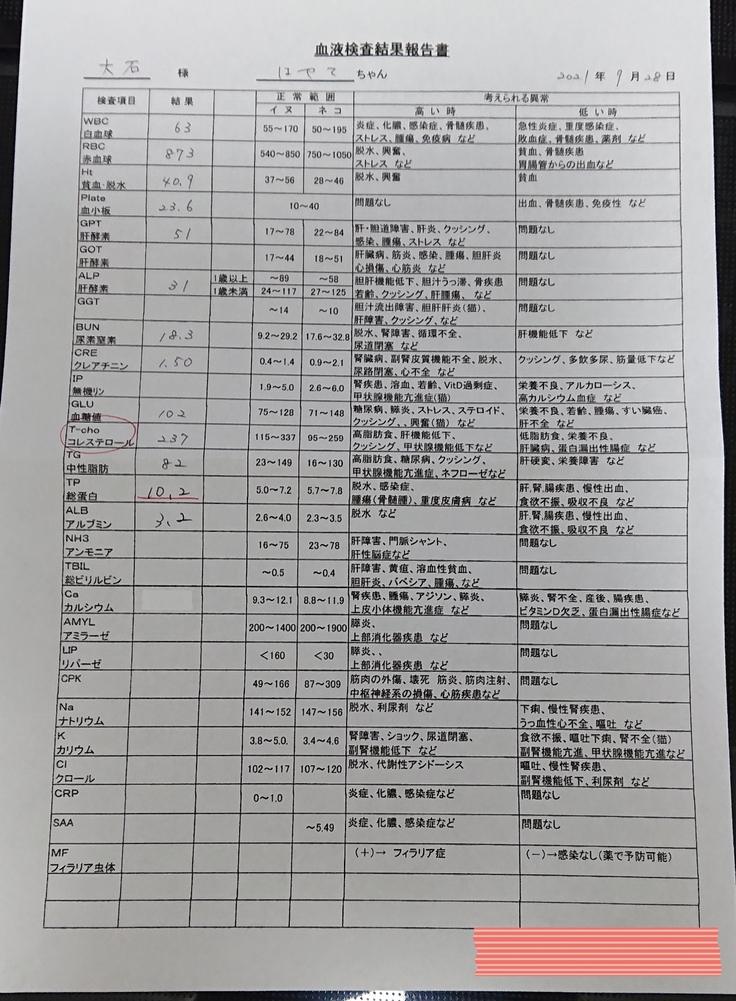 血液検査結果報告書
大石 様 はやて ちゃん 2021年 9月 28日
検査項目 結果 正常範囲 考えられる異常
イヌ ネコ 高い時 低い時
WBC 63 55～170 50～195 炎症、化膿、感染症、骨髄疾患、 急性炎症、重度感染症、
白血球 ストレス、腫瘍、免疫病 など 敗血症、骨髄疾患、薬剤 など
RBC 873 540～850 750～1050 脱水、興奮、 貧血、骨髄疾患
赤血球 ストレス など 胃腸管からの出血など
Ht 40.9 37～56 28～46 脱水、興奮 貧血
貧血・脱水
Plate 23.6 10～40 問題なし 出血、骨髄疾患、免疫性 など
血小板
GPT 51 17～78 22～84 肝・胆道障害、肝炎、クッシング、 問題なし
肝酵素 感染、腫瘍、ストレス など
GOT 17～44 18～51 肝臓病、筋炎、感染、腫瘍、胆肝炎 問題なし
肝酵素 心損傷、心筋炎 など
ALP 31 1歳以上 ～89 ～58 胆肝機能低下、胆汁うっ滞、骨疾患 問題なし
肝酵素 1歳未満 24～117 27～125 若齢、クッシング、肝腫瘍、 など
GGT ～14 ～10 胆汁流出障害、胆肝肝炎(猫)、 問題なし
肝障害、クッシング、など
BUN 18.3 9.2～29.2 17.6～32.8 脱水、腎障害、循環不全、 肝機能低下 など
尿素窒素 尿道閉塞 など
CRE 1.50 0.4～1.4 0.9～2.1 腎臓病、副腎皮質機能不全、脱水、 クッシング、多飲多尿、筋量低下など
クレアチニン 尿路閉塞、心不全 など
IP 1.9～5.0 2.6～6.0 腎疾患、溶血、若齢、VitD過剰症、 栄養不良、アルカローシス、
無機リン 甲状腺機能亢進症(猫) 高カルシウム血症 など
GLU 102 75～128 71～148 糖尿病、膵炎、ストレス、ステロイド、 栄養不良、若齢、腫瘍、すい臓癌、
血糖値 クッシング、、興奮(猫) など 肝不全 など
T-cho 237 115～337 95～259 高脂肪食、肝機能低下、 低脂肪食、栄養不良、
コレステロール クッシング、甲状腺機能低下など 肝臓病、蛋白漏出性腸症 など
TG 82 23～149 16～130 高脂肪食、糖尿病、クッシング、 肝硬変、栄養障害 など
中性脂肪 甲状腺機能亢進症、ネフローゼなど
TP 10.2 5.0～7.2 5.7～7.8 脱水、感染症、 肝,腎,腸疾患、慢性出血、
総蛋白 腫瘍(骨髄腫)、重度皮膚病 など 食欲不振、吸収不良 など
ALB 3.2 2.6～4.0 2.3～3.5 脱水 など 肝,腎,腸疾患、慢性出血、
アルブミン 食欲不振、吸収不良 など
NH3 16～75 23～78 肝障害、門脈シャント、 問題なし
アンモニア 肝性脳症など
TBIL ～0.5 ～0.4 肝障害、黄疸、溶血性貧血、 問題なし
総ビリルビン 胆肝炎、バベシア、腫瘍、など
Ca 9.3～12.1 8.8～11.9 腎疾患、腫瘍、アジソン、膵炎、 膵炎、腎不全、産後、腸疾患、
カルシウム 上皮小体機能亢進症 など ビタミンD欠乏、蛋白漏出性腸症など
AMYL 200～1400 200～1900 膵炎、 問題なし
アミラーゼ 上部消化器疾患 など
LIP ＜160 ＜30 膵炎、、 問題なし
リパーゼ 上部消化器疾患 など
CPK 49～166 87～309 筋肉の外傷、壊死 筋炎、筋肉注射、 問題なし
中枢神経系の損傷、心筋疾患など
Na 141～152 147～156 脱水、利尿剤 など 下痢、慢性腎疾患、
ナトリウム うっ血性心不全、嘔吐 など
K 3.8～5.0. 3.4～4.6 腎障害、ショック、尿道閉塞、 食欲不振、嘔吐下痢、腎不全(猫)
カリウム 副腎機能低下 など 副腎機能亢進、甲状腺機能亢進など
Cl 102～117 107～120 脱水、代謝性アシドーシス 嘔吐、慢性腎疾患、
クロール 副腎機能低下、利尿剤 など
CRP 0～1.0 炎症、化膿、感染症など 問題なし
SAA ～5.49 炎症、化膿、感染症など 問題なし
MF (＋)→ フィラリア症 (－)→感染なし(薬で予防可能)
フィラリア虫体